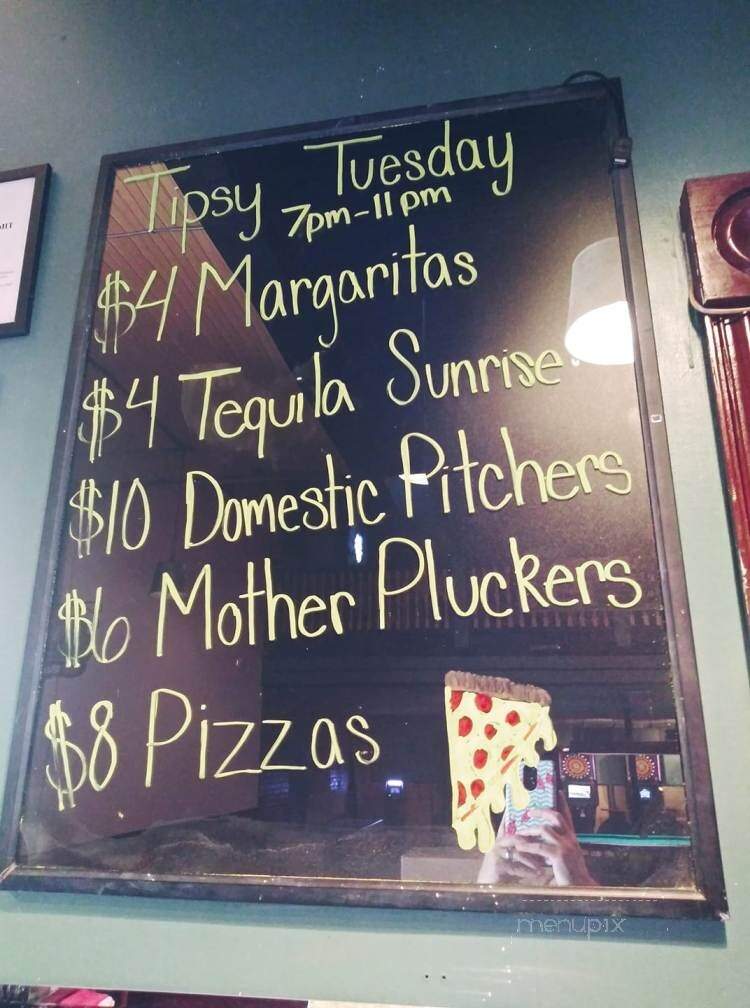 Tipsy Tuesday
7pm-11pm
$4 Margaritas
$4 Tequila Sunrise
$10 Domestic Pitchers
$6 Mother Pluckers
$8 Pizzas
menupix